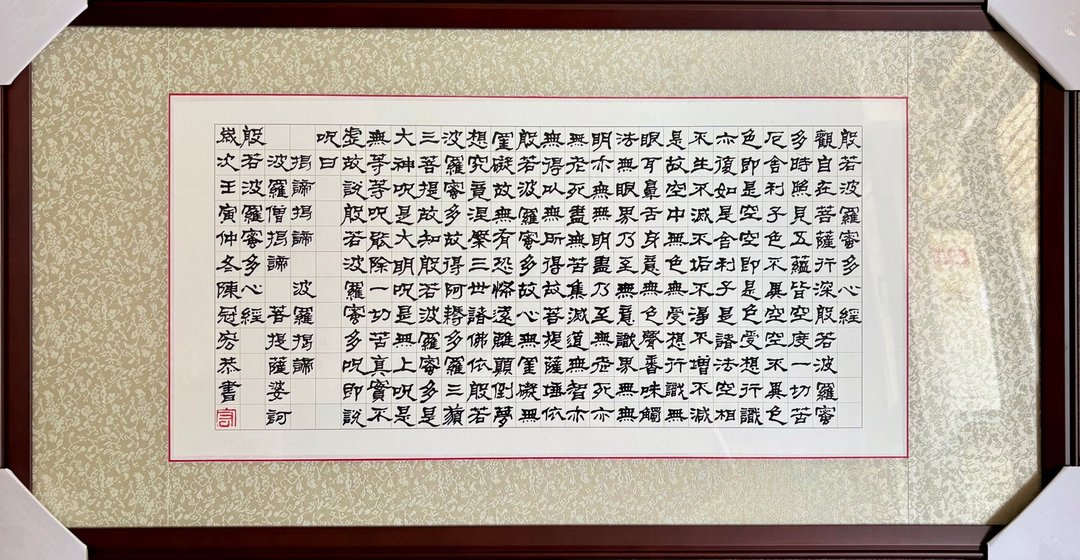 般若波羅蜜多心經
觀自在菩薩行深般若波羅蜜
多時照見五蘊皆空度一切苦
厄舍利子色不異空空不異色
色即是空空即是色受想行識
亦復如是舍利子是諸法空相
不生不滅不垢不淨不增不減
是故空中無色無受想行識無
眼耳鼻舌身意無色聲香味觸
法無眼界乃至無意識界無無
明亦無無明盡乃至無老死亦
無老死盡無苦集滅道無智亦
無得以無所得故菩提薩埵依
般若波羅蜜多故心無罣礙無
罣礙故無有恐怖遠離顛倒夢
想究竟涅槃三世諸佛依般若
波羅蜜多故得阿耨多羅三藐
三菩提故知般若波羅蜜多是
大神呪是大明呪是無上呪是
無等等呪能除一切苦真實不
虛故說般若波羅蜜多呪即說
呪曰
揭諦揭諦 波羅揭諦
波羅僧揭諦 菩提薩婆訶
般若波羅蜜多心經
歲次壬寅仲冬陳冠恭書